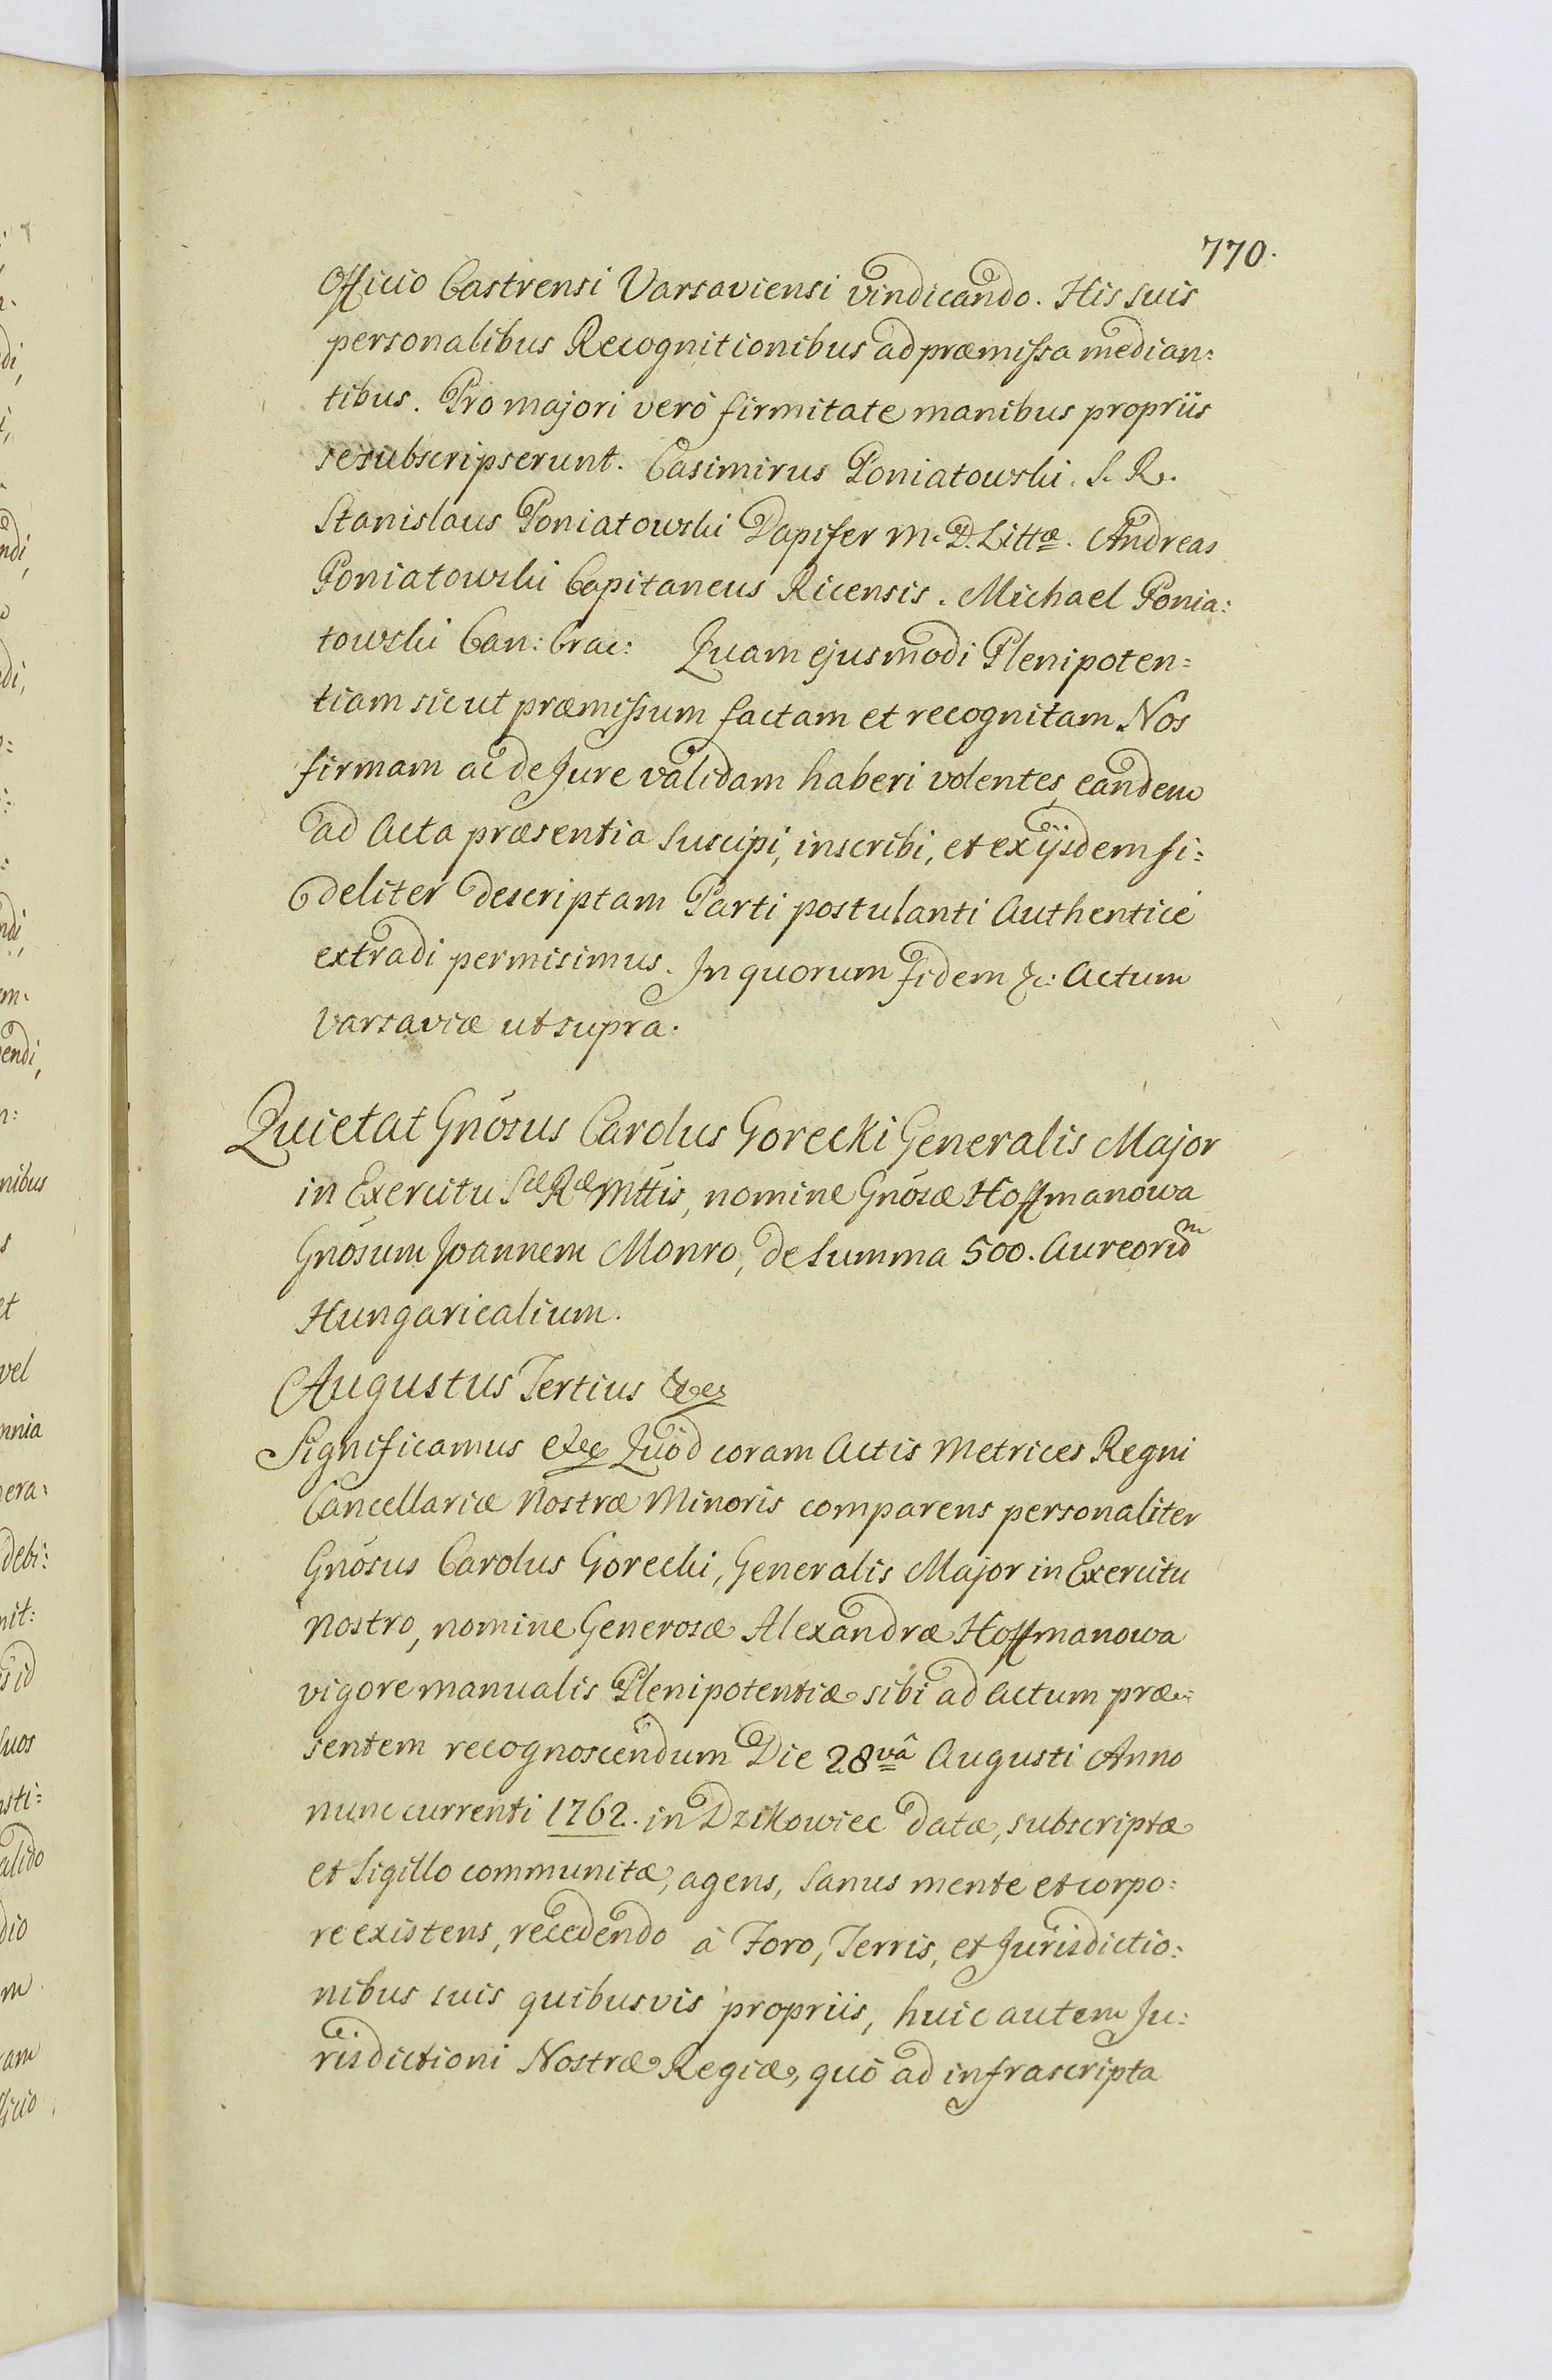 770.
Officio Castrensi Varsaviensi vindicando. His suis
personalibus Recognitionibus ad præmissa median:
tibus. Pro majori verò firmitate manibus propriis
se subscripserunt. Casimirus Poniatowski. S. R.
Stanislaus Poniatowski Dapifer M. D. Littæ. Andreas
Poniatowski Capitaneus Ricensis. Michael Ponia:
towski Can: Crac: Quam ejusmodi Plenipoten=
tiam sicut præmissum factam et recognitam Nos
firmam ac de Jure validam haberi volentes, eandem
ad Acta præsentia suscipi, inscribi, et ex ijsdem fi:
deliter descriptam Parti postulanti Authenticè
extradi permisimus. In quorum fidem &c: Actum
Varsaviæ ut supra.
Quietat Gnosus Carolus Gorecki Generalis Major
in Exercitu Sæ Ræ Mttis, nomine Gnosæ Hoffmanowa
Gnosum Joannem Monro, de Summa 500. Aureorum
Hungaricalium.
Augustus Tertius &c
Significamus &c Quòd coram Actis Metrices Regni
Cancellariæ Nostræ Minoris comparens personaliter
Gnosus Carolus Gorecki, Generalis Major in Exercitu
Nostro, nomine Generosæ Alexandræ Hoffmanowa
vigore manualis Plenipotentiæ sibi ad Actum præ:
sentem recognoscendum Die 28vâ Augusti Anno
nunc currenti 1762. in Dzikowiec datæ, subscriptæ
et Sigillo communitæ, agens, Sanus mente et corpo:
re existens, recedendo à Foro, Terris, et Jurisdictio:
nibus suis quibusvis propriis, huic autem Ju:
risdictioni Nostræ Regiæ, quò ad infrascripta